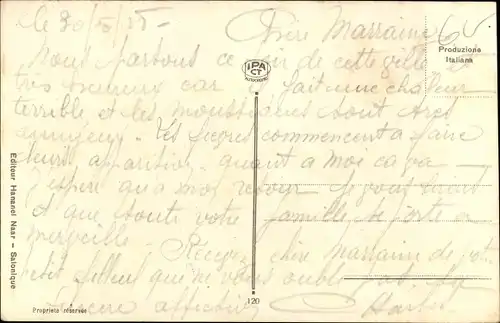 le 30/5/25-
Chère Marraine
Nous partons ce soir de cette ville et
très heureux car il fait une chaleur
terrible et les moustiques sont très
ennuyeux. Les fièvres commencent à faire
leurs apparition. quant à moi ça va
j'espère qu'a mon retour je vous
et que toute votre famille se porte à
merveille. Recevez chère Marraine de votre
petit filleul que ne vous oublie pas. Ses
sincère affection
64
Produzione
Italiana
IPA
CT
120
Editeur Hananel Naar - Salonique
Propriété réservée